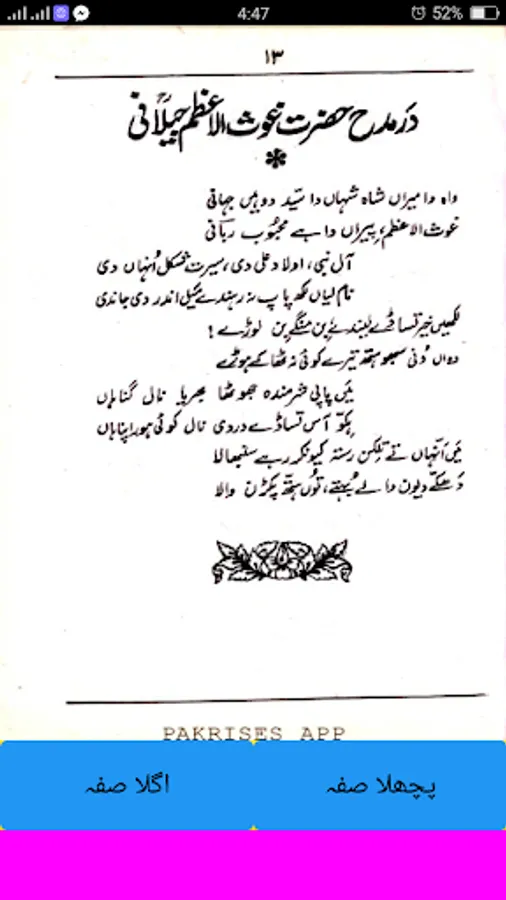 4:47
52%
۱۳
در مدح حضرت غوث الاعظم جیلانیؒ
واہ وا میراں شاہ شہاں دا سید دوہیں جہانی
غوث الاعظمؒ پیراں دا ہے محبوب ربانی
آل نبی، اولاد علی دی، سیرت شکل اُنہاں دی
نام لیاں لکھ پاپ نہ رہندے میل اندر دی جاندی
لکھیں خیر تساڈے لیندے بِن منگے بِن لوڑے!
دوہاں سبھو ہتھ تیرے کوئی نہ
میں پاپی شرمندہ جھوٹھا بھریا نال گناہاں
ہِکو آس تساڈے در دی نال کوئی ہور پناہاں
میں اَنہاں تے تِلکن رستہ کیونکر رہے سنبھالا
دَھکے دیون والے بُہتے، تُوں ہتھ پکڑن والا
PAKRISES APP
پچھلا صفہ
اگلا صفہ